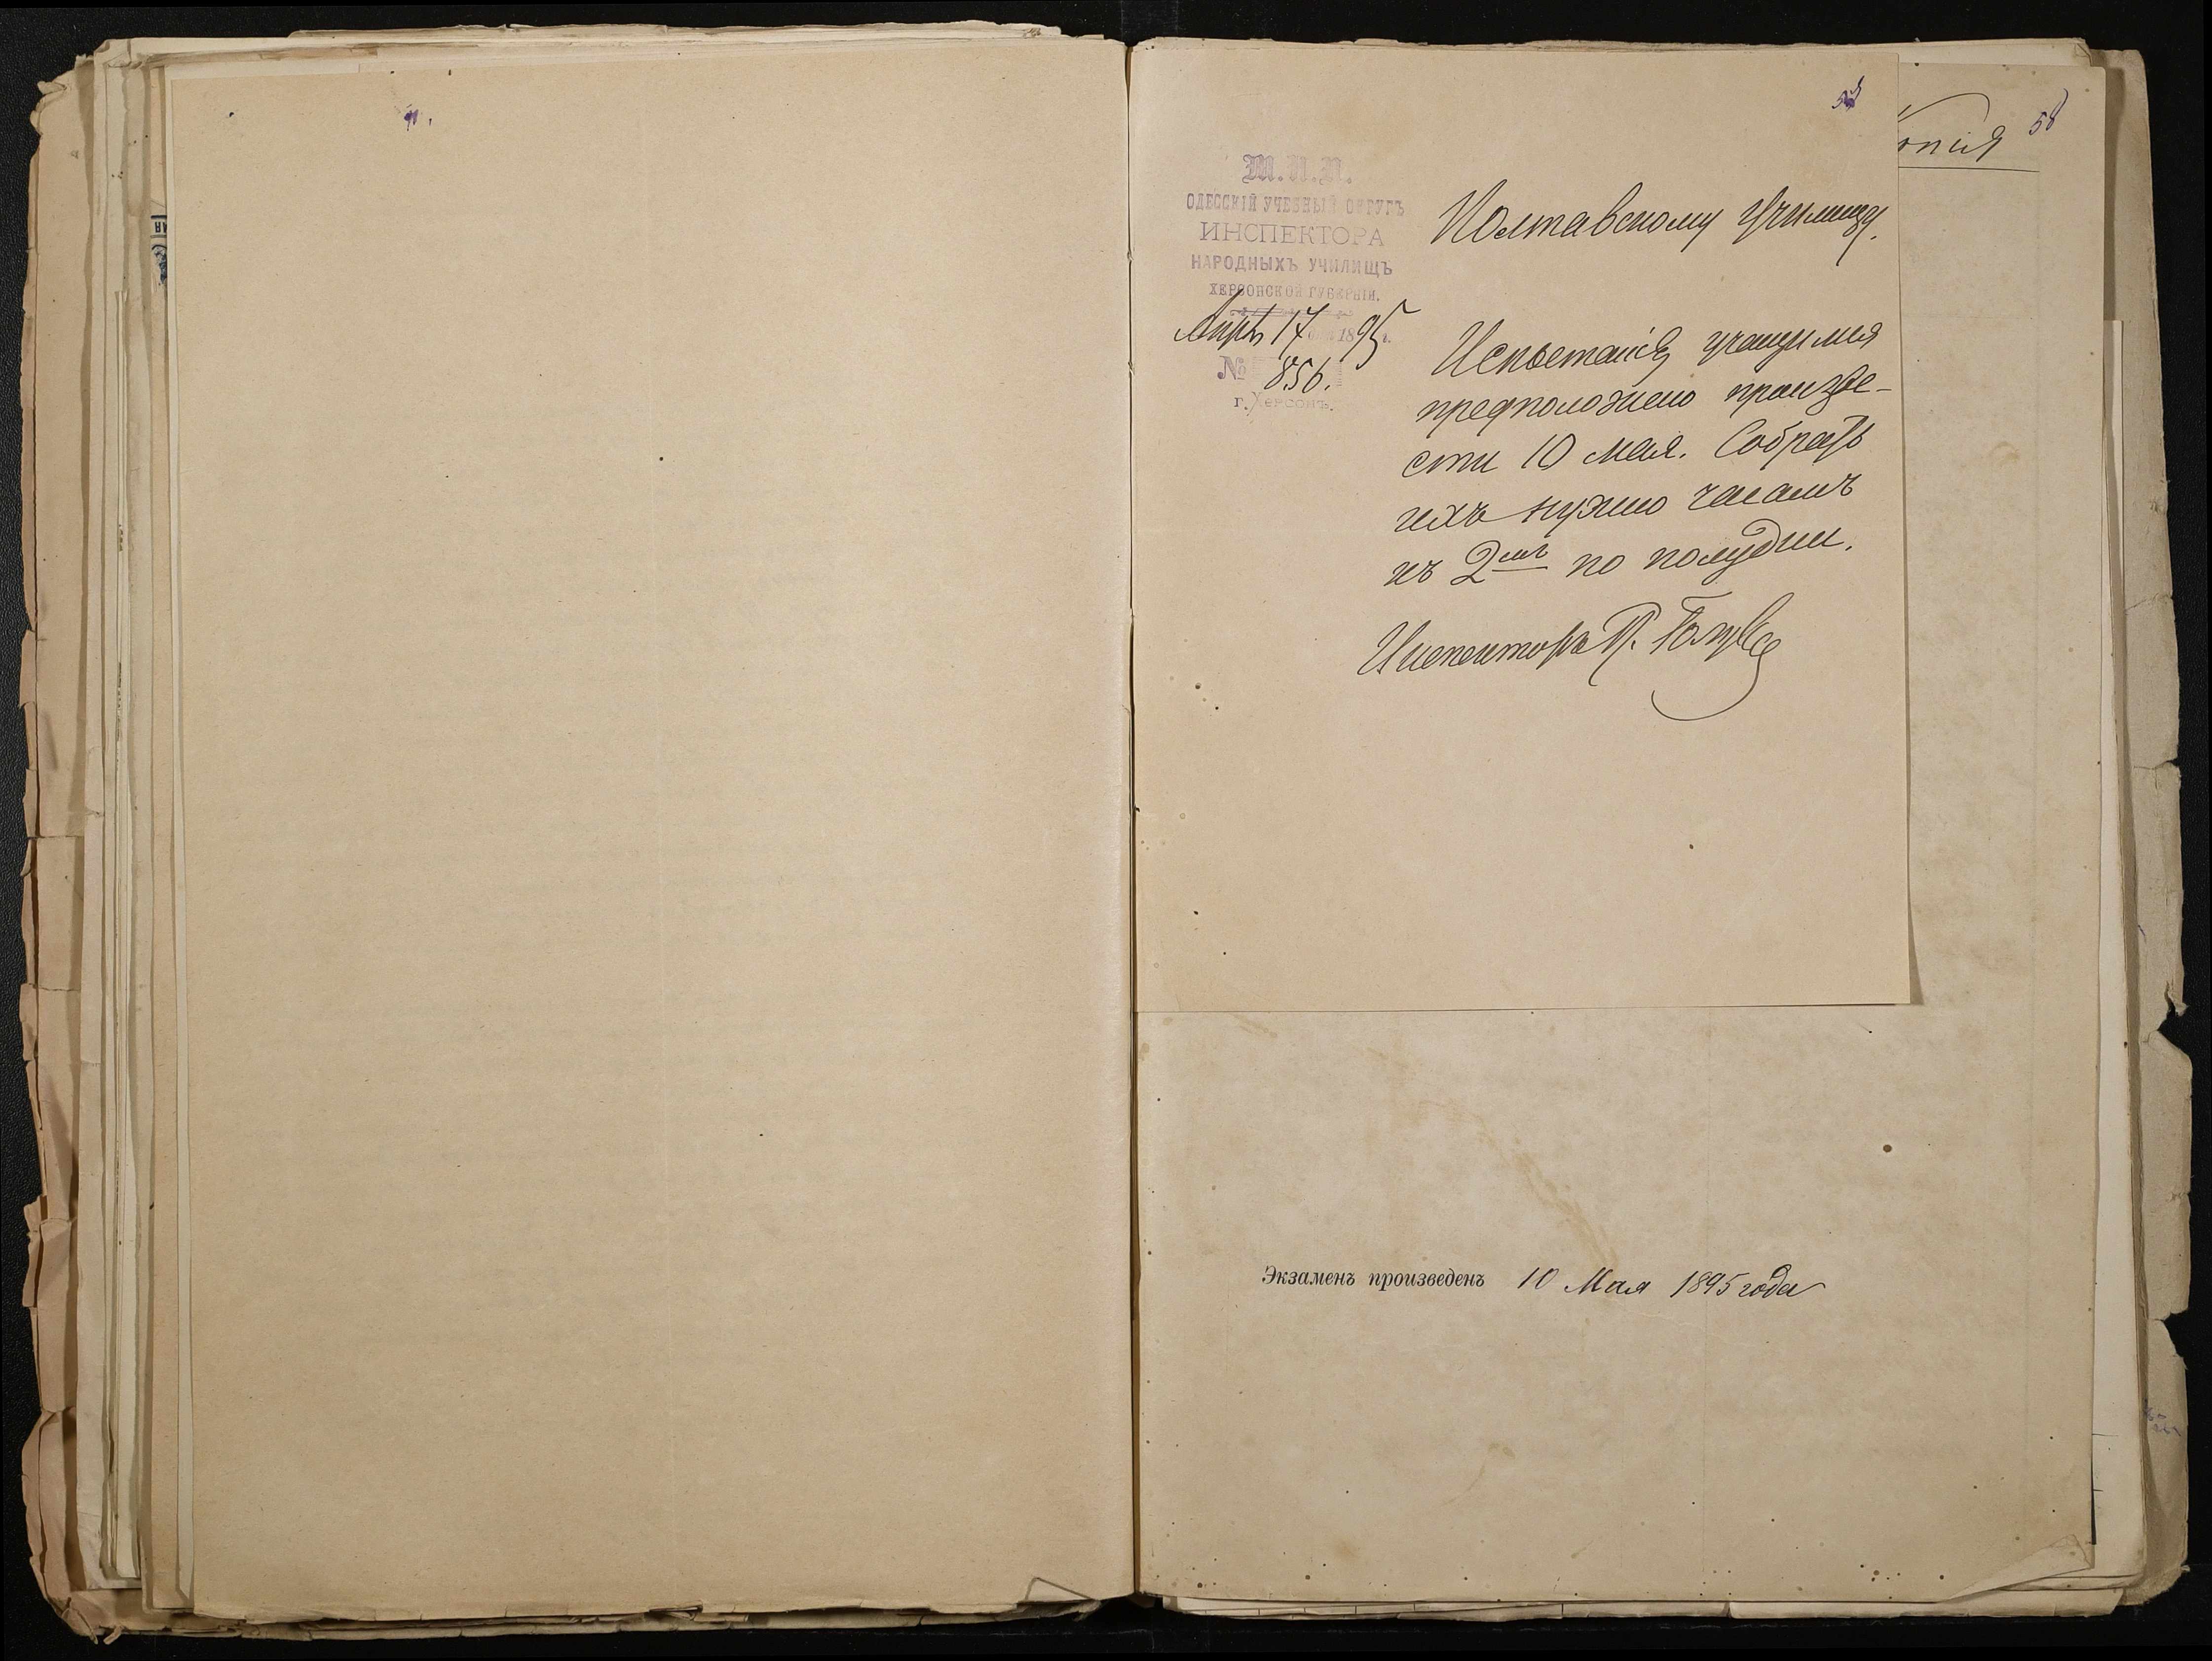 58
опія
М.Н.П.
ОДЕССКІЙ УЧЕБНЫЙ ОКРУГЪ
ИНСПЕКТОРА
НАРОДНЫХЪ УЧИЛИЩЪ
ХЕРСОНСКОЙ ГУБЕРНІИ.
Апрѣ 17 1895 г.
№ 856.
г. Херсонъ.
Полтавскому училищу.
Испытанія учащимся
предположено произве-
сти 10 мая. Собрать
ихъ нужно часамъ
къ 2мъ по полудни.
Инспекторъ
Экзаменъ произведенъ 10 Мая 1895 года